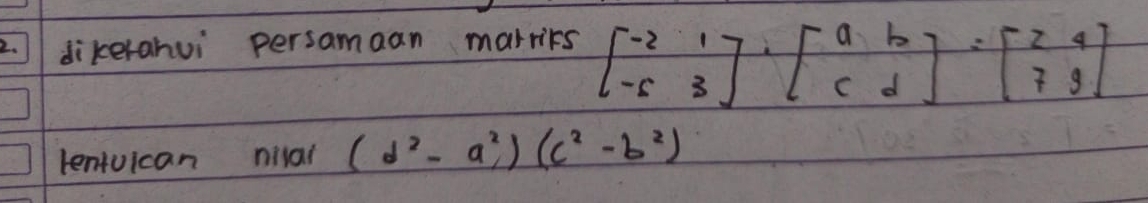 2. diketahui persamaan matriks [-2 1] . [a b] = [2 4]
[-5 3] [c d] [7 9]
tentukan nilai (d² - a²) (c² - b²)